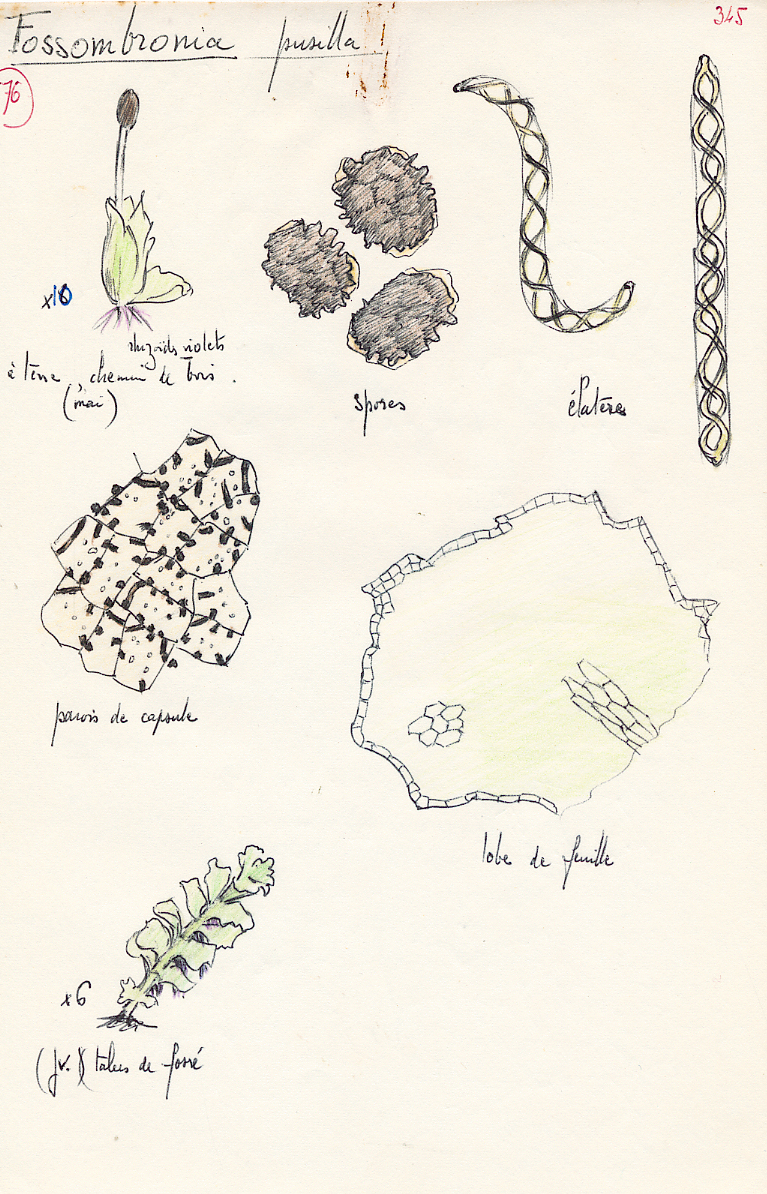 345
Fossombronia pusilla
76
x10
rhizoïds violets
à terre, chemin de bois.
(mai)
spores
élatères
parois de capsule
lobe de feuille
x6
(Jv.) talus de fossé